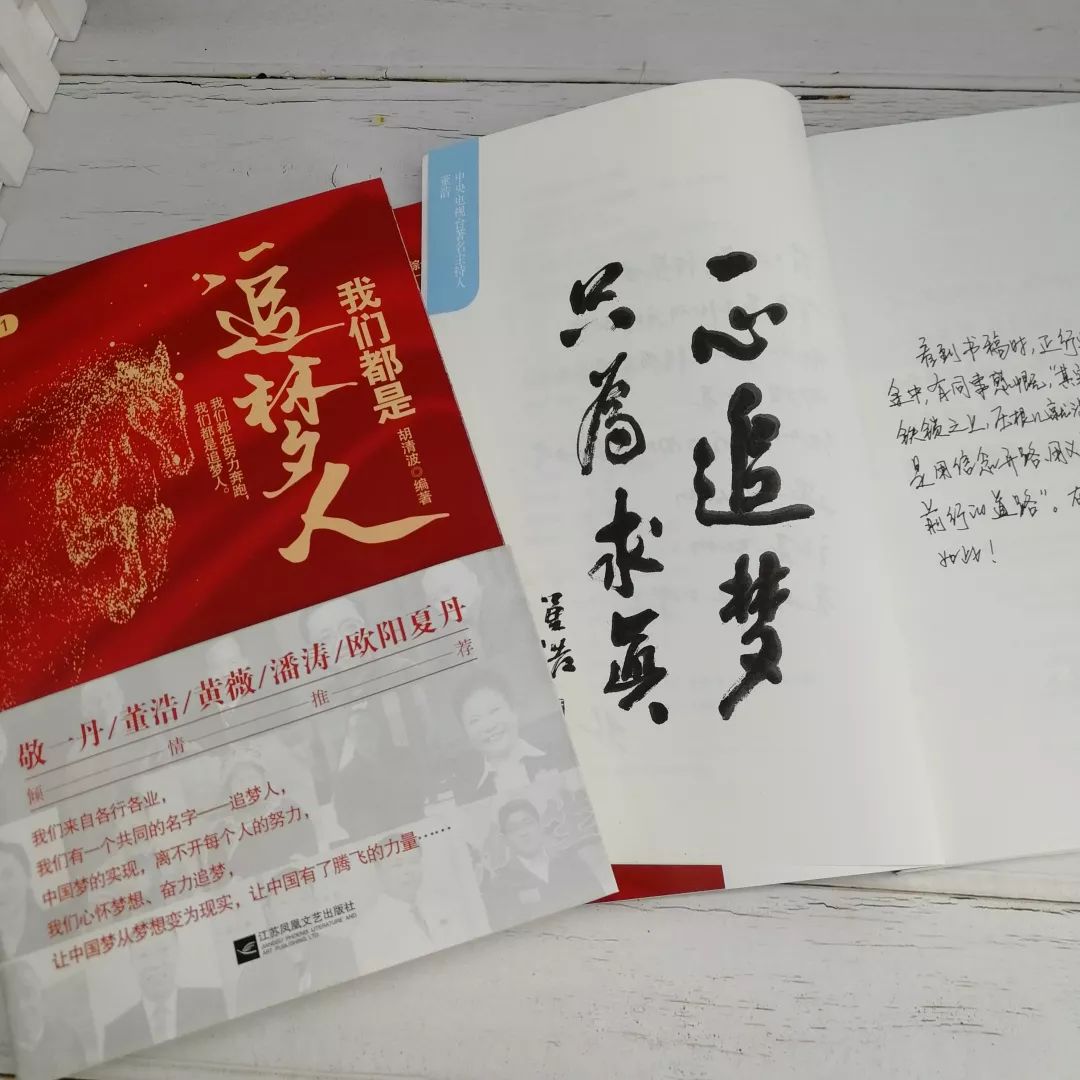 1
我们都是
追梦人
我们都在努力奔跑，
我们都是追梦人。
胡清波◎编著
敬一丹/董浩/黄薇/潘涛/欧阳夏丹
倾情推荐
我们来自各行各业，
我们有一个共同的名字——追梦人，
中国梦的实现，离不开每个人的努力，
我们心怀梦想、奋力追梦，
让中国梦从梦想变为现实，让中国有了腾飞的力量……
江苏凤凰文艺出版社
JIANGSU PHOENIX LITERATURE AND
ART PUBLISHING, LTD
中央电视台著名主持人
董浩
一心追梦
只為求真
董浩
看到书稿时，正行
金中，有同事感慨，“其实
铁锁之上，压根儿就没
是用信念开路，用义
前行的道路”。在
如此！